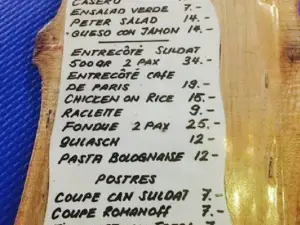 CASERO
ENSALAD VERDE 7.-
PETER SALAD 14.-
QUESO CON JAHON 14.-
ENTRECÔTE SULDAT
500GR 2 PAX 34.-
ENTRECÔTE CAFE
DE PARIS 19.-
CHICKEN ON RICE 15.-
RACLETTE 9.-
FONDUE 2 PAX 25.-
GULASCH 12-
PASTA BOLOGNAISE 12-
POSTRES
COUPE CAN SULDAT 7.-
COUPE ROMANOFF 7.-
7.-